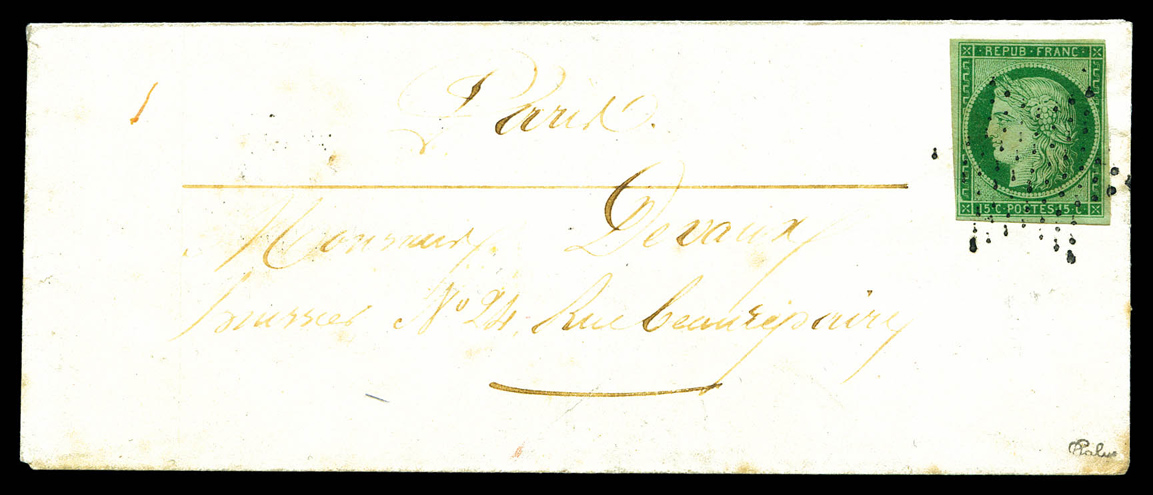 Paris.
REPUB·FRANC·
15·C·POSTES·15·C
Monsieur Devaux
huissier N° 24. Rue beaurepaire
Calves